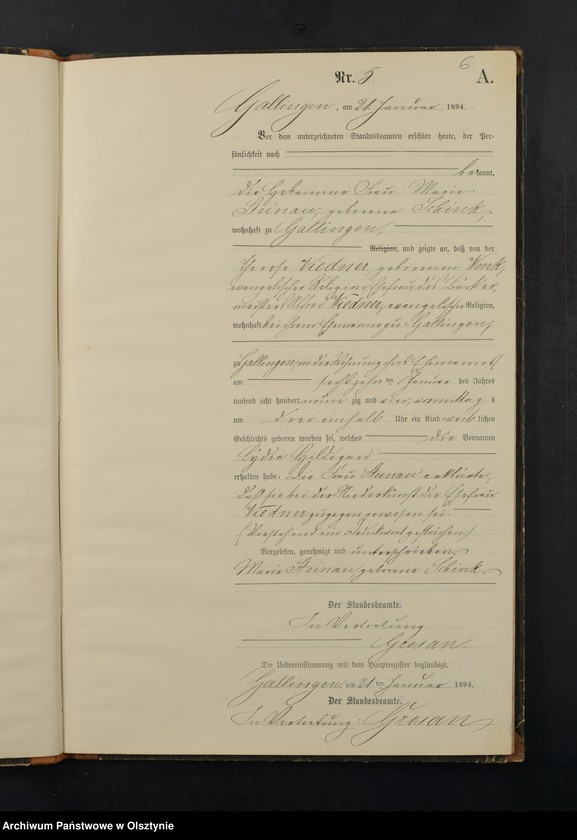 6
Nr. 5. A.
Gallingen, am 21. Januar 1894.
Vor dem unterzeichneten Standesbeamten erschien heute, der Per-
sönlichkeit nach
bekannt,
die Hebamme Frau Marie
Steinau, geborene Schink,
wohnhaft zu Gallingen,
Religion, und zeigte an, daß von der
Therese Viedner, geborenen Wenk,
evangelischer Religion, Ehefrau des Bäcker-
meisters Viedner, evangelischer Religion,
wohnhaft bei ihrem Ehemanne zu Gallingen,
zu Gallingen, in der Wohnung ihres Ehemannes
am sechszehnten Januar des Jahres
tausend acht hundert neunzig und vier, vormittags
um drei einhalb Uhr ein Kind weiblichen
Geschlechts geboren worden sei, welches die Vornamen
Lydia Hildegard
erhalten habe. Die Frau Steinau erklärte,
daß sie bei der Niederkunft der Ehefrau
Viedner zugegen gewesen sei.
(Vorstehend ein Druckwort gestrichen)
Vorgelesen, genehmigt und unterschrieben
Marie Steinau, geborene Schink
Der Standesbeamte.
In Vertretung
Gresan.
Die Uebereinstimmung mit dem Hauptregister beglaubigt.
Gallingen, am 21ten Januar 1894.
Der Standesbeamte.
In Vertretung: Gresan
Archiwum Państwowe w Olsztynie